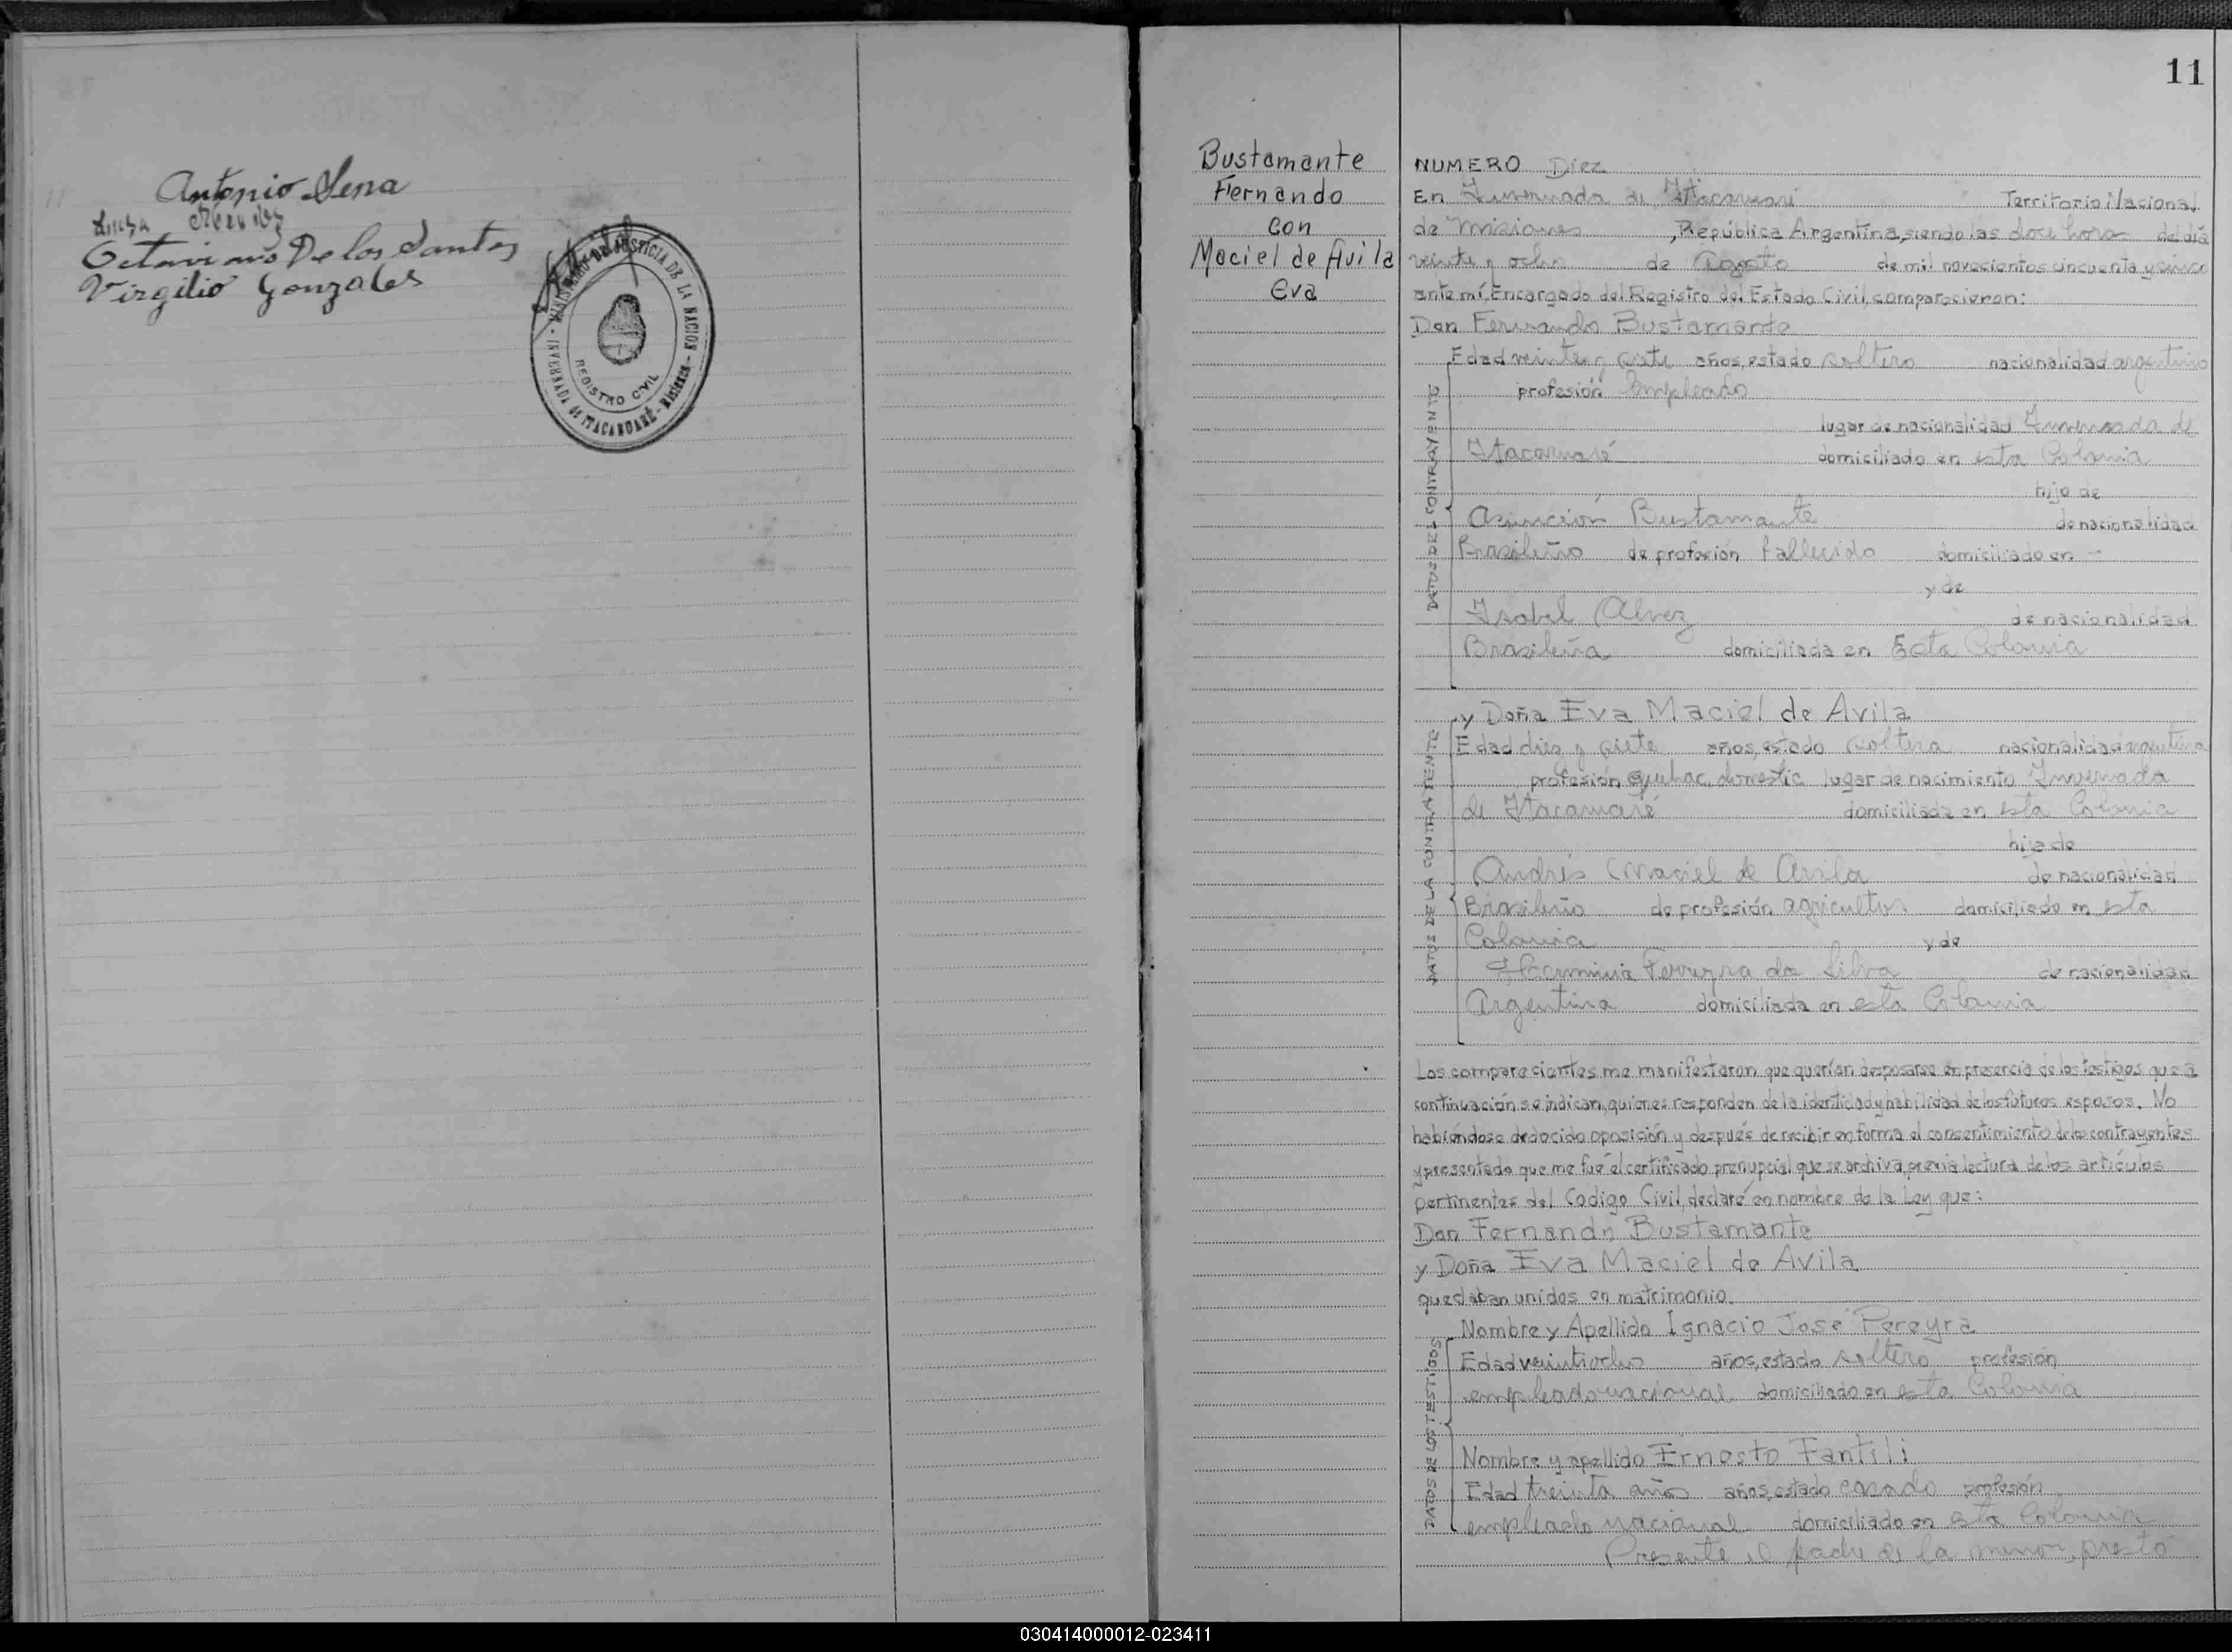 Antonio Sena
Octaviano De los Santos
Virgilio Gonzales
MINISTERIO DE JUSTICIA DE LA NACION - Misiones - INVERNADA DE ITACARUARÉ
REGISTRO CIVIL
11
Bustamante
Fernando
con
Maciel de Avila
Eva
NUMERO Diez
En Invernada de Itacaruaré Territorio Nacional
de Misiones, República Argentina, siendo las doce horas del día
veinte y ocho de Agosto de mil novecientos cincuenta y cinco
ante mí, Encargado del Registro del Estado Civil, comparecieron:
Don Fernando Bustamante
DATOS DEL CONTRAYENTE
Edad veinte y siete años, estado soltero nacionalidad argentino
profesión Empleado
lugar de nacionalidad Invernada de
Itacaruaré domiciliado en esta Colonia
hijo de
Asunción Bustamante de nacionalidad
Brasileño de profesión fallecido domiciliado en -
y de
Isabel Alvez de nacionalidad
Brasileña domiciliada en Esta Colonia
DATOS DE LA CONTRAYENTE
y Doña Eva Maciel de Avila
Edad diez y siete años, estado soltera nacionalidad argentina
profesión quehac. domestic lugar de nacimiento Invernada
de Itacaruaré domiciliada en esta Colonia
hija de
Andrés Maciel de Avila de nacionalidad
Brasileño de profesión agricultor domiciliado en esta
Colonia y de
Herminia Ferreyra da Silva de nacionalidad
Argentina domiciliada en esta Colonia
Los comparecientes me manifestaron que querían desposarse en presencia de los testigos que a
continuación se indican, quienes responden de la identidad y habilidad de los futuros esposos. No
habiéndose deducido oposición y después de recibir en forma el consentimiento de los contrayentes
y presentado que me fué el certificado prenupcial que se archiva, previa lectura de los artículos
pertinentes del Codigo Civil, declaré en nombre de la Ley que:
Don Fernando Bustamante
y Doña Eva Maciel de Avila
quedaban unidos en matrimonio.
DATOS DE LOS TESTIGOS
Nombre y Apellido Ignacio José Pereyra
Edad veintiocho años, estado soltero profesión
empleado nacional domiciliado en esta Colonia
Nombre y apellido Ernesto Fantili
Edad treinta años años, estado casado profesión
empleado nacional domiciliado en esta Colonia
Presente el padre de la menor, prestó
030414000012-023411